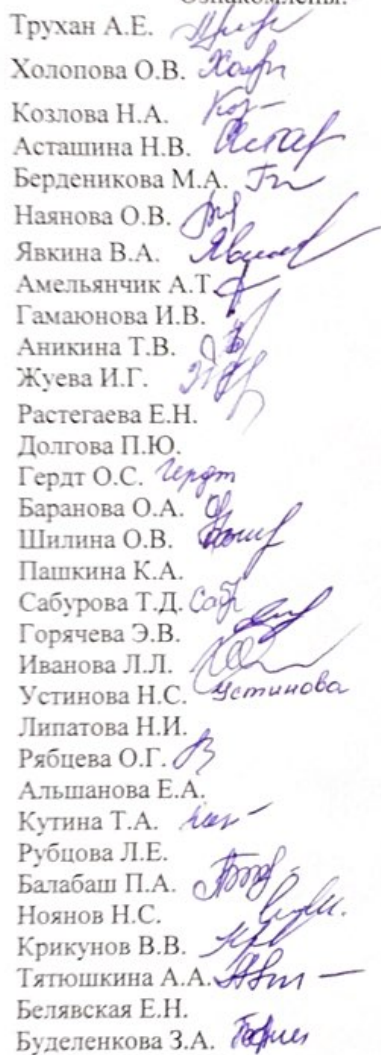 Ознакомлены:
Трухан А.Е.
Холопова О.В.
Козлова Н.А.
Асташина Н.В.
Берденикова М.А.
Наянова О.В.
Явкина В.А.
Амельянчик А.Т.
Гамаюнова И.В.
Аникина Т.В.
Жуева И.Г.
Растегаева Е.Н.
Долгова П.Ю.
Гердт О.С. Гердт
Баранова О.А.
Шилина О.В.
Пашкина К.А.
Сабурова Т.Д.
Горячева Э.В.
Иванова Л.Л.
Устинова Н.С. Устинова
Липатова Н.И.
Рябцева О.Г.
Альшанова Е.А.
Кутина Т.А.
Рубцова Л.Е.
Балабаш П.А.
Ноянов Н.С.
Крикунов В.В.
Тятюшкина А.А.
Белявская Е.Н.
Буделенкова З.А.